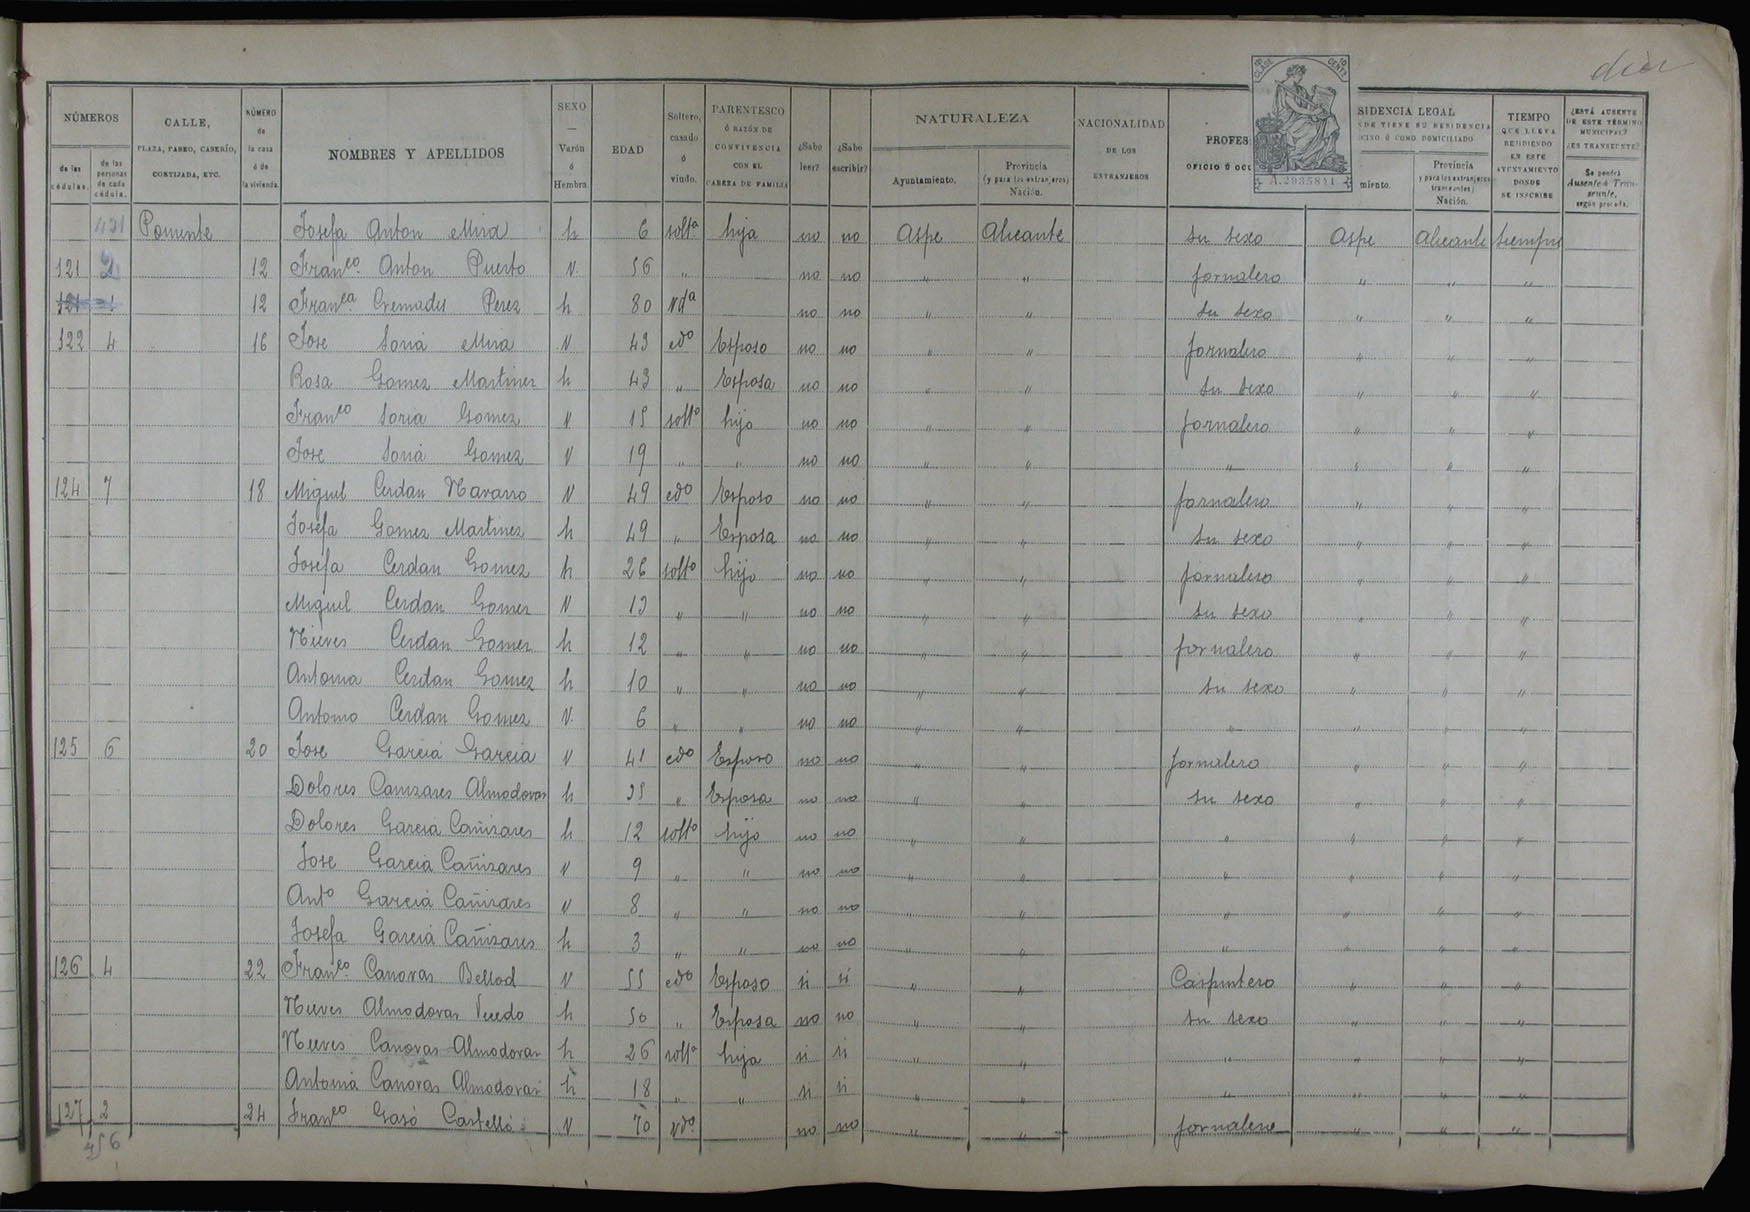 dier
NÚMEROS
de las cédulas.
de las personas de cada cédula.
CALLE,
PLAZA, PASEO, CASERÍO,
CORTIJADA, ETC.
NÚMERO
de
la casa
ó de
la vivienda.
NOMBRES Y APELLIDOS
SEXO
—
Varón
ó
Hembra.
EDAD
Soltero,
casado
ó
viudo.
PARENTESCO
Ó RAZÓN DE
CONVIVENCIA
CON EL
CABEZA DE FAMILIA
¿Sabe
leer?
¿Sabe
escribir?
NATURALEZA
Ayuntamiento.
Provincia
(y para los extranjeros)
Nación.
NACIONALIDAD
DE LOS
EXTRANJEROS
PROFES
OFICIO Ó OCU
10 CLASE 10 CENTS
A.2935841
SIDENCIA LEGAL
DE TIENE SU RESIDENCIA
CINO Ó COMO DOMICILIADO
miento.
Provincia
y para los extranjeros
transeuntes)
Nación.
TIEMPO
QUE LLEVA
RESIDIENDO
EN ESTE
AYUNTAMIENTO
DONDE
SE INSCRIBE
¿ESTÁ AUSENTE
DE ESTE TÉRMINO
MUNICIPAL?
¿ES TRANSEUNTE?
Se pondrá
Ausente ó Tran-
seunte,
según proceda.
431 Poniente Josefa Anton Mira h 6 solta hija no no Aspe Alicante su sexo Aspe Alicante siempre
121 2 12 Franco. Anton Puerto V. 56 " no no " " Jornalero " " "
121 1 12 Franca. Cremades Perez h 80 Vda no no " " su sexo " " "
122 4 16 Jose Soria Mira V 43 cdo Esposo no no " " Jornalero " " "
Rosa Gomez Martinez h 43 " Esposa no no " " su sexo " " "
Franco Soria Gomez V 15 solto hijo no no " " Jornalero " " "
Jose Soria Gomez V 19 " " no no " " " " " "
124 7 18 Miguel Cerdan Navarro V 49 cdo Esposo no no " " Jornalero " " "
Josefa Gomez Martinez h 49 " Esposa no no " " su sexo " " "
Josefa Cerdan Gomez h 26 solto hijo no no " " jornalero " " "
Miguel Cerdan Gomez V 13 " " no no " " su sexo " " "
Nieves Cerdan Gomez h 12 " " no no " " jornalero " " "
Antonia Cerdan Gomez h 10 " " no no " " su sexo " " "
Antonio Cerdan Gomez V. 6 " " no no " " " " " "
125 6 20 Jose Garcia Garcia V 41 cdo Esposo no no " " Jornalero " " "
Dolores Canizares Almodovar h 35 " Esposa no no " " su sexo " " "
Dolores Garcia Cañizares h 12 solto hijo no no " " " " " "
Jose Garcia Cañizares V 9 " " no no " " " " " "
Anto Garcia Cañizares V 8 " " no no " " " " " "
Josefa Garcia Cañizares h 3 " " no no " " " " " "
126 4 22 Franco. Canovas Bellod V 55 cdo Esposo si si " " Carpintero " " "
Nieves Almodovar h 50 " Esposa no no " " su sexo " " "
Nieves Canovas Almodovar h 26 solta hija si si " " " " " "
Antonia Canovas Almodovar h 18 " " si si " " " " " "
127 2 24 Franco Gasó Castelló V 70 vdo. no no " " Jornalero " " "
456